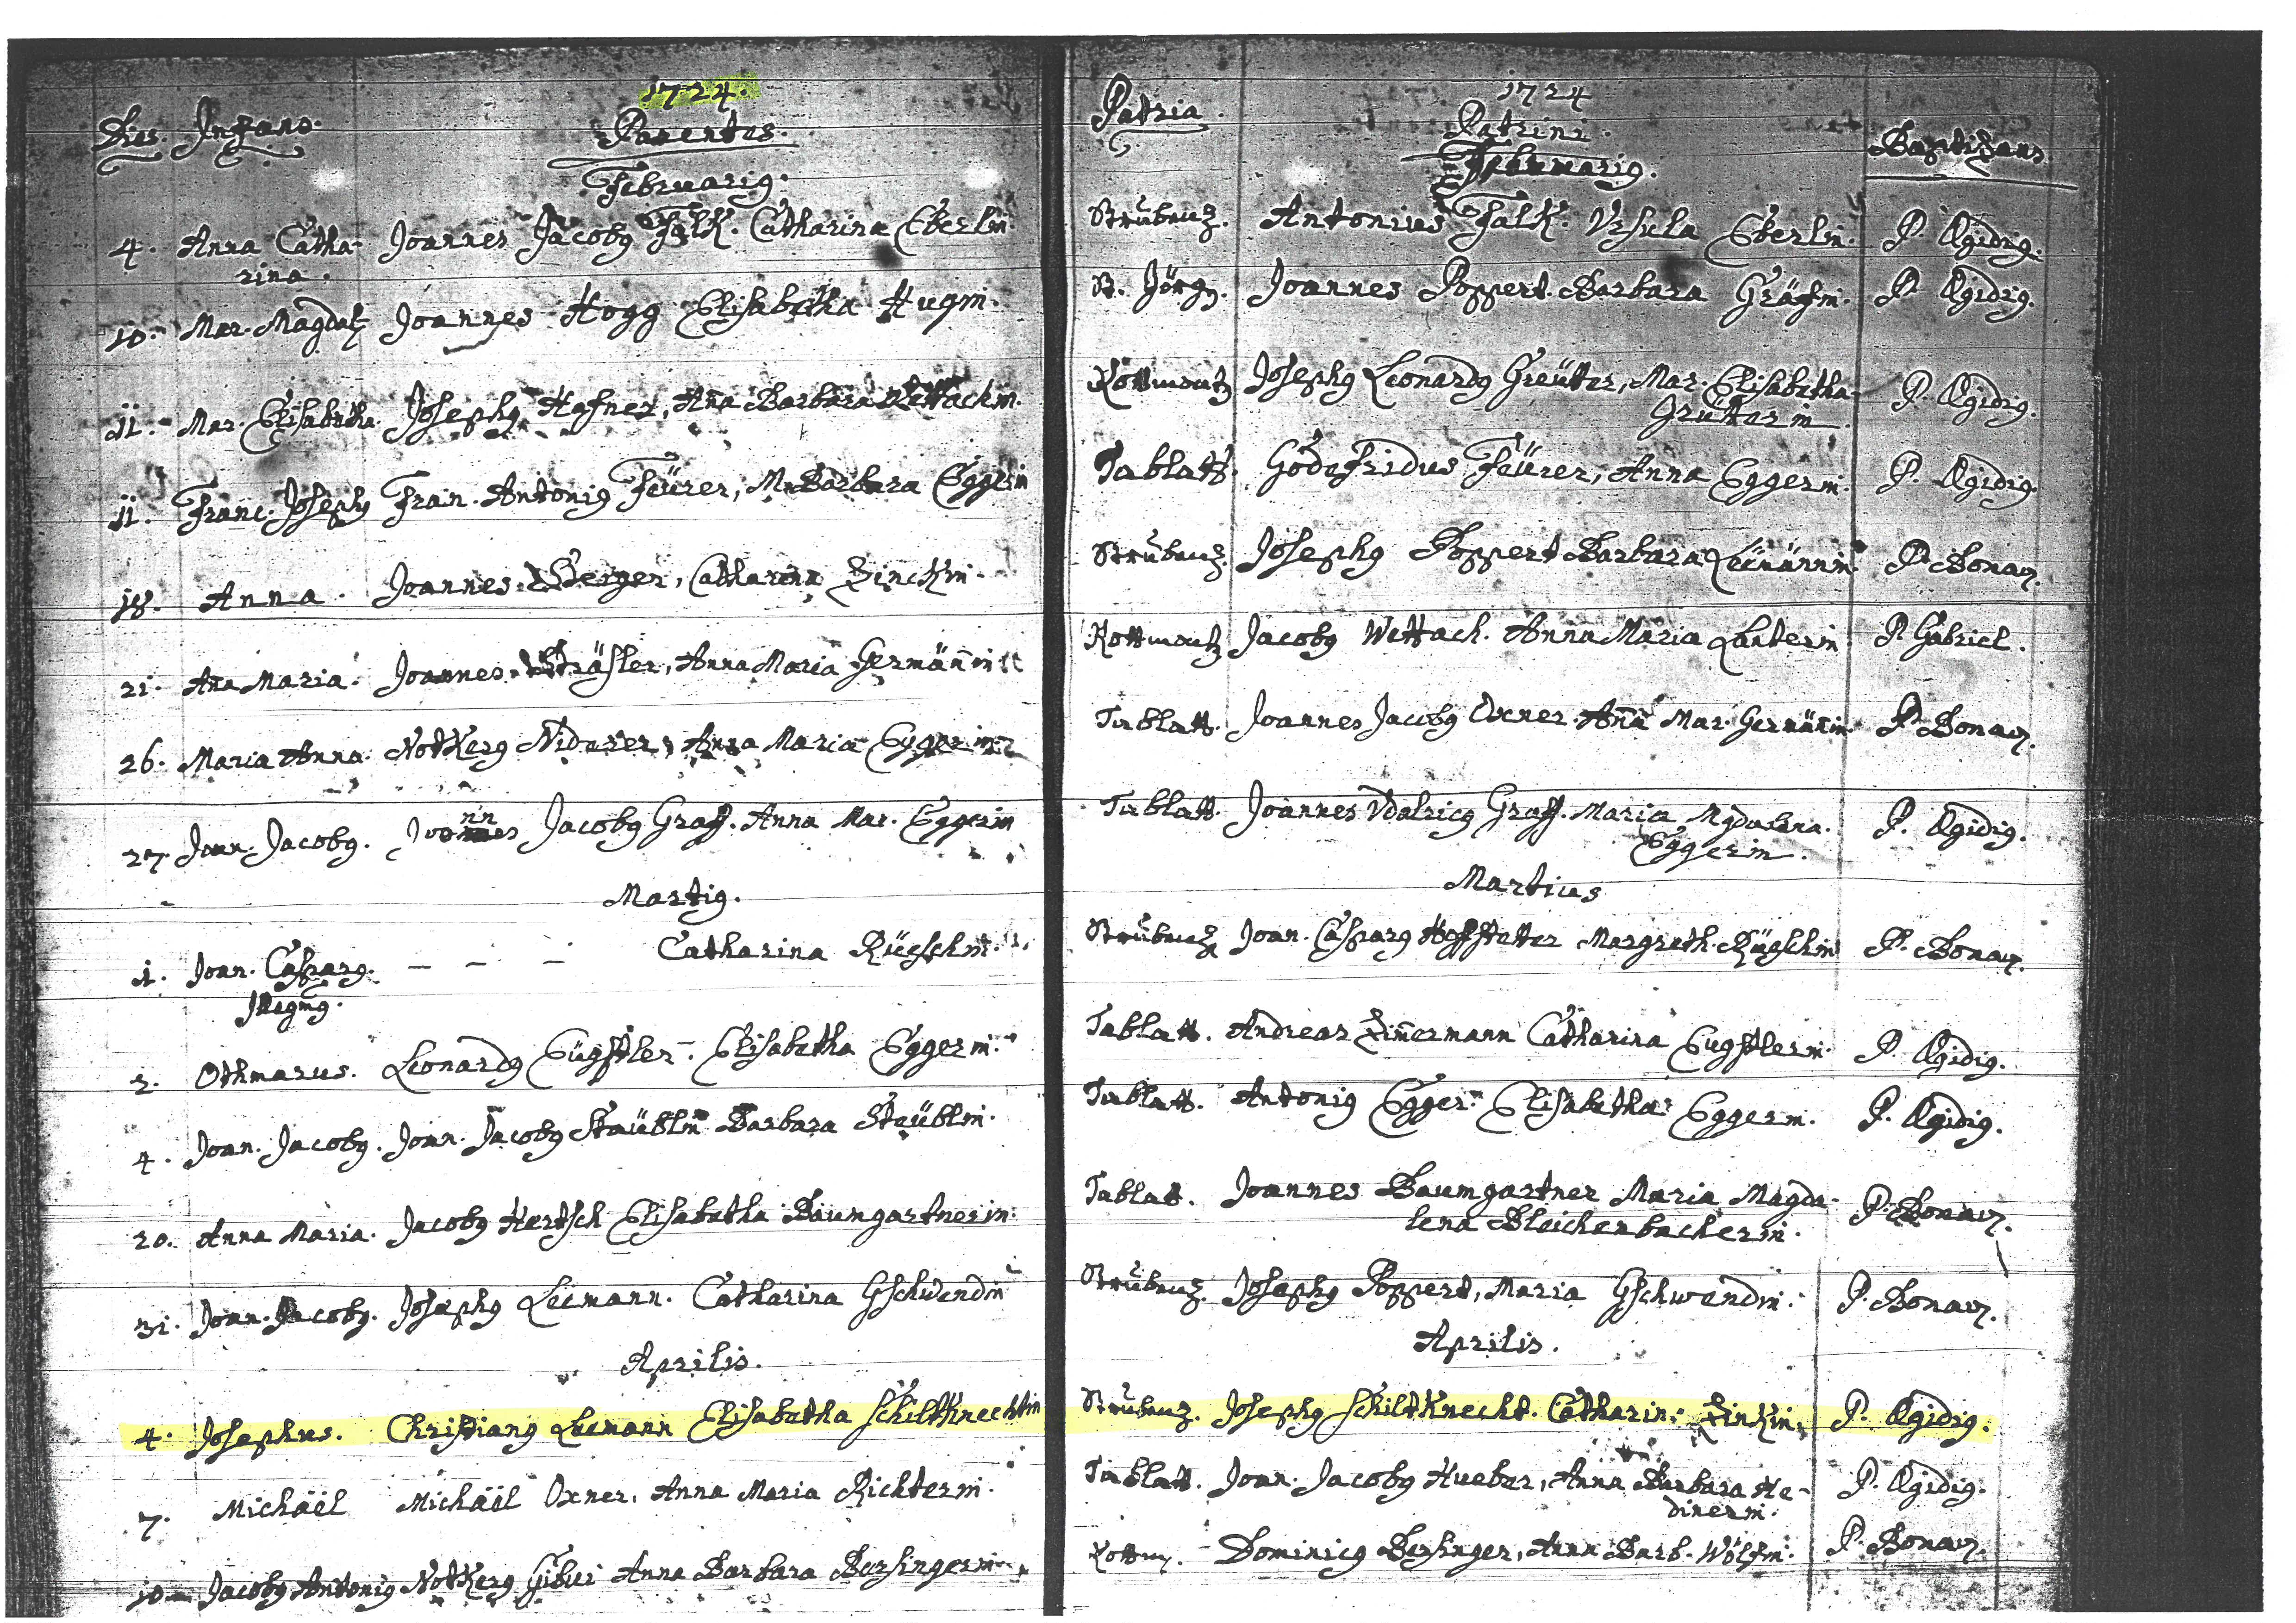 1724.
Dies. Infans. Parentes.
Februarig.
4. Anna Catha- Joannes Jacobg Falk. Catharina Eberlin.
rina.
10. Mar. Magdal. Joannes Hogg Elisabetha Hugin.
11. Mar. Elisabetha. Josephg Hafner, Aña Barbara Wettachin.
11. Franc. Josephg Fran. Antonig Feürer, M. Barbara Eggerin
18. Anna. Joannes Berger, Catharina Zinckin.
21. Aña Maria. Joannes Sträsler, Anna Maria Germäñin
26. Maria Anna. Notkerg Niderer, Anna Maria Eggerin
27. Joan. Jacobg. Joannes Jacobg Graff. Anna Mar. Eggerin
Martig.
1. Joan. Casparg. – – – Catharina Rüeschin.
2. Othmarus. Leonardg Eügstler. Elisabetha Eggerin.
4. Joan. Jacobg. Joan. Jacobg Staüblin Barbara Steüblin.
20. Anna Maria. Jacobg Hertsch Elisabetha Baumgartnerin.
31. Joan. Jacobg. Josephg Leemann. Catharina Gschwendin
Aprilis.
4. Josephus. Christiang Leemann Elisabetha Schiltknechtin
7. Michäël Michäël Oxner. Anna Maria Richterin.
10. Jacobg Antonig Notkerg Anna Barbara Berlingerin.
1724
Patria. Patrini. Baptizans
Februarig.
Strübenz. Antonius Falk. Vrsula Eberlin. P. Ægidig.
S. Jörgen. Joannes Poppert. Barbara Gräfin. P. Ægidig.
Rottmont. Josephg Leonardg Greütter, Mar. Elisabetha P. Ægidig.
Grütterin
Tablatt. Godefridus Feürer, Anna Eggerin. P. Ægidig.
Strübenz. Josephg Poppert Barbara Leemännin. P. Bonav.
Rottmont. Jacobg Wettach. Anna Maria Lauterin P. Gabriel.
Tablatt. Joannes Jacobg Oxner Aña Mar. Germäñin. P. Bonav.
Tablatt. Joannes Vdalricg Graff. Maria Mgdalena. P. Ægidig.
Eggerin.
Martius
Strübenz Joan. Casparg Hoffstetter Margreth. Rüeschin P. Bonav.
Tablatt. Andreas Zim̃ermann Catharina Eugstlerin. P. Ægidig.
Tablatt. Antonig Egger. Elisabetha Eggerin. P. Ægidig.
Tablatt. Joannes Baumgartner Maria Magda- P. Bonav.
lena Bleichenbacherin.
Strübenz. Josephg Poppert, Maria Gschwendin. P. Bonav.
Aprilis.
Strübenz. Josephg Schiltknecht. Catharin. Zinkin. P. Ægidig.
Tablatt. Joan. Jacobg Hueber, Anna Barbara He- P. Ægidig.
dinerin.
Rottm. Dominicg Berlinger, Anna Barb. Wölfin. P. Bonav.